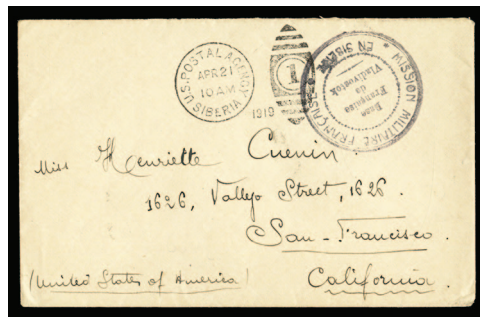 U.S. POSTAL AGENCY
APR 21
10 AM
SIBERIA
1919
1
* MISSION MILITAIRE FRANÇAISE * EN SIBÉRIE
Base
Française
de
Vladivostok
Miss Henriette Cuenin.
1626, Vallejo Street, 1626.
San-Francisco.
(United States of America)
California.